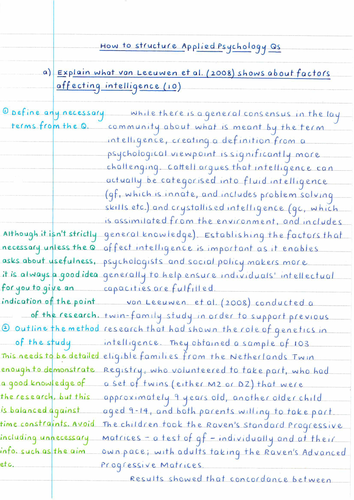 How to structure Applied Psychology Qs
a) Explain what van Leeuwen et al. (2008) shows about factors
affecting intelligence (10)
① Define any necessary
terms from the Q.
While there is a general consensus in the lay
community about what is meant by the term
intelligence, creating a definition from a
psychological viewpoint is significantly more
challenging. Cattell argues that intelligence can
actually be categorised into fluid intelligence
(gf, which is innate, and includes problem solving
skills etc.) and crystallised intelligence (gc, which
is assimilated from the environment, and includes
general knowledge). Establishing the factors that
affect intelligence is important as it enables
psychologists and social policy makers more
generally to help ensure individuals' intellectual
capacities are fulfilled.
Although it isn't strictly
necessary unless the Q
asks about usefulness,
it is always a good idea
for you to give an
indication of the point
of the research.
van Leeuwen et al. (2008) conducted a
twin-family study in order to support previous
research that had shown the role of genetics in
intelligence. They obtained a sample of 103
eligible families from the Netherlands Twin
Registry, who volunteered to take part, who had
a set of twins (either MZ or DZ) that were
approximately 9 years old, another older child
aged 9-14, and both parents willing to take part.
The children took the Raven's Standard Progressive
Matrices - a test of gf - individually and at their
own pace; with adults taking the Raven's Advanced
Progressive Matrices.
② Outline the method
of the study
This needs to be detailed
enough to demonstrate
a good knowledge of
the research, but this
is balanced against
time constraints. Avoid
including unnecessary
info. such as the aim
etc.
Results showed that concordance between